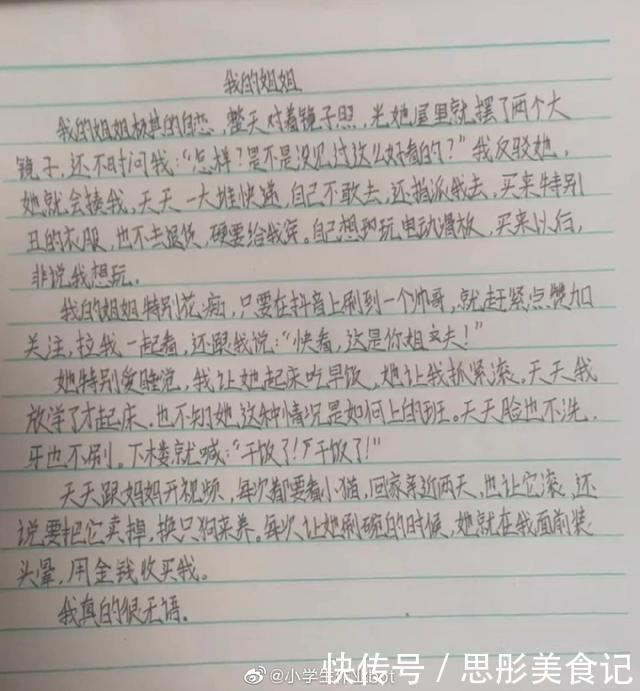 我的姐姐
我的姐姐极其的自恋，整天对着镜子照，光她屋里就摆了两个大
镜子，还不时问我：“怎样？是不是没见过这么好看的？”我反驳她，
她就会揍我，天天一大堆快递，自己不敢去，还指派我去，买来特别
丑的衣服，也不去退货，硬要给我穿。自己想玩电动滑板，买来以后，
非说我想玩。
我的姐姐特别花痴，只要在抖音上刷到一个帅哥，就赶紧点赞加
关注，拉我一起看，还跟我说：“快看，这是你姐夫！”
她特别爱睡觉，我让她起床吃早饭，她让我抓紧滚。天天我
放学了才起床，也不知她这种情况是如何上的班。天天脸也不洗，
牙也不刷。下楼就喊：“干饭了！干饭了！”
天天跟妈妈开视频，每次都要看小猫，回家亲近两天，也让它滚，还
说要把它卖掉，换只狗来养。每次让她刷碗的时候，她就在我面前装
头晕，用金钱收买我。
我真的很无语。
@小学生
bot
快传号／思彤美食记